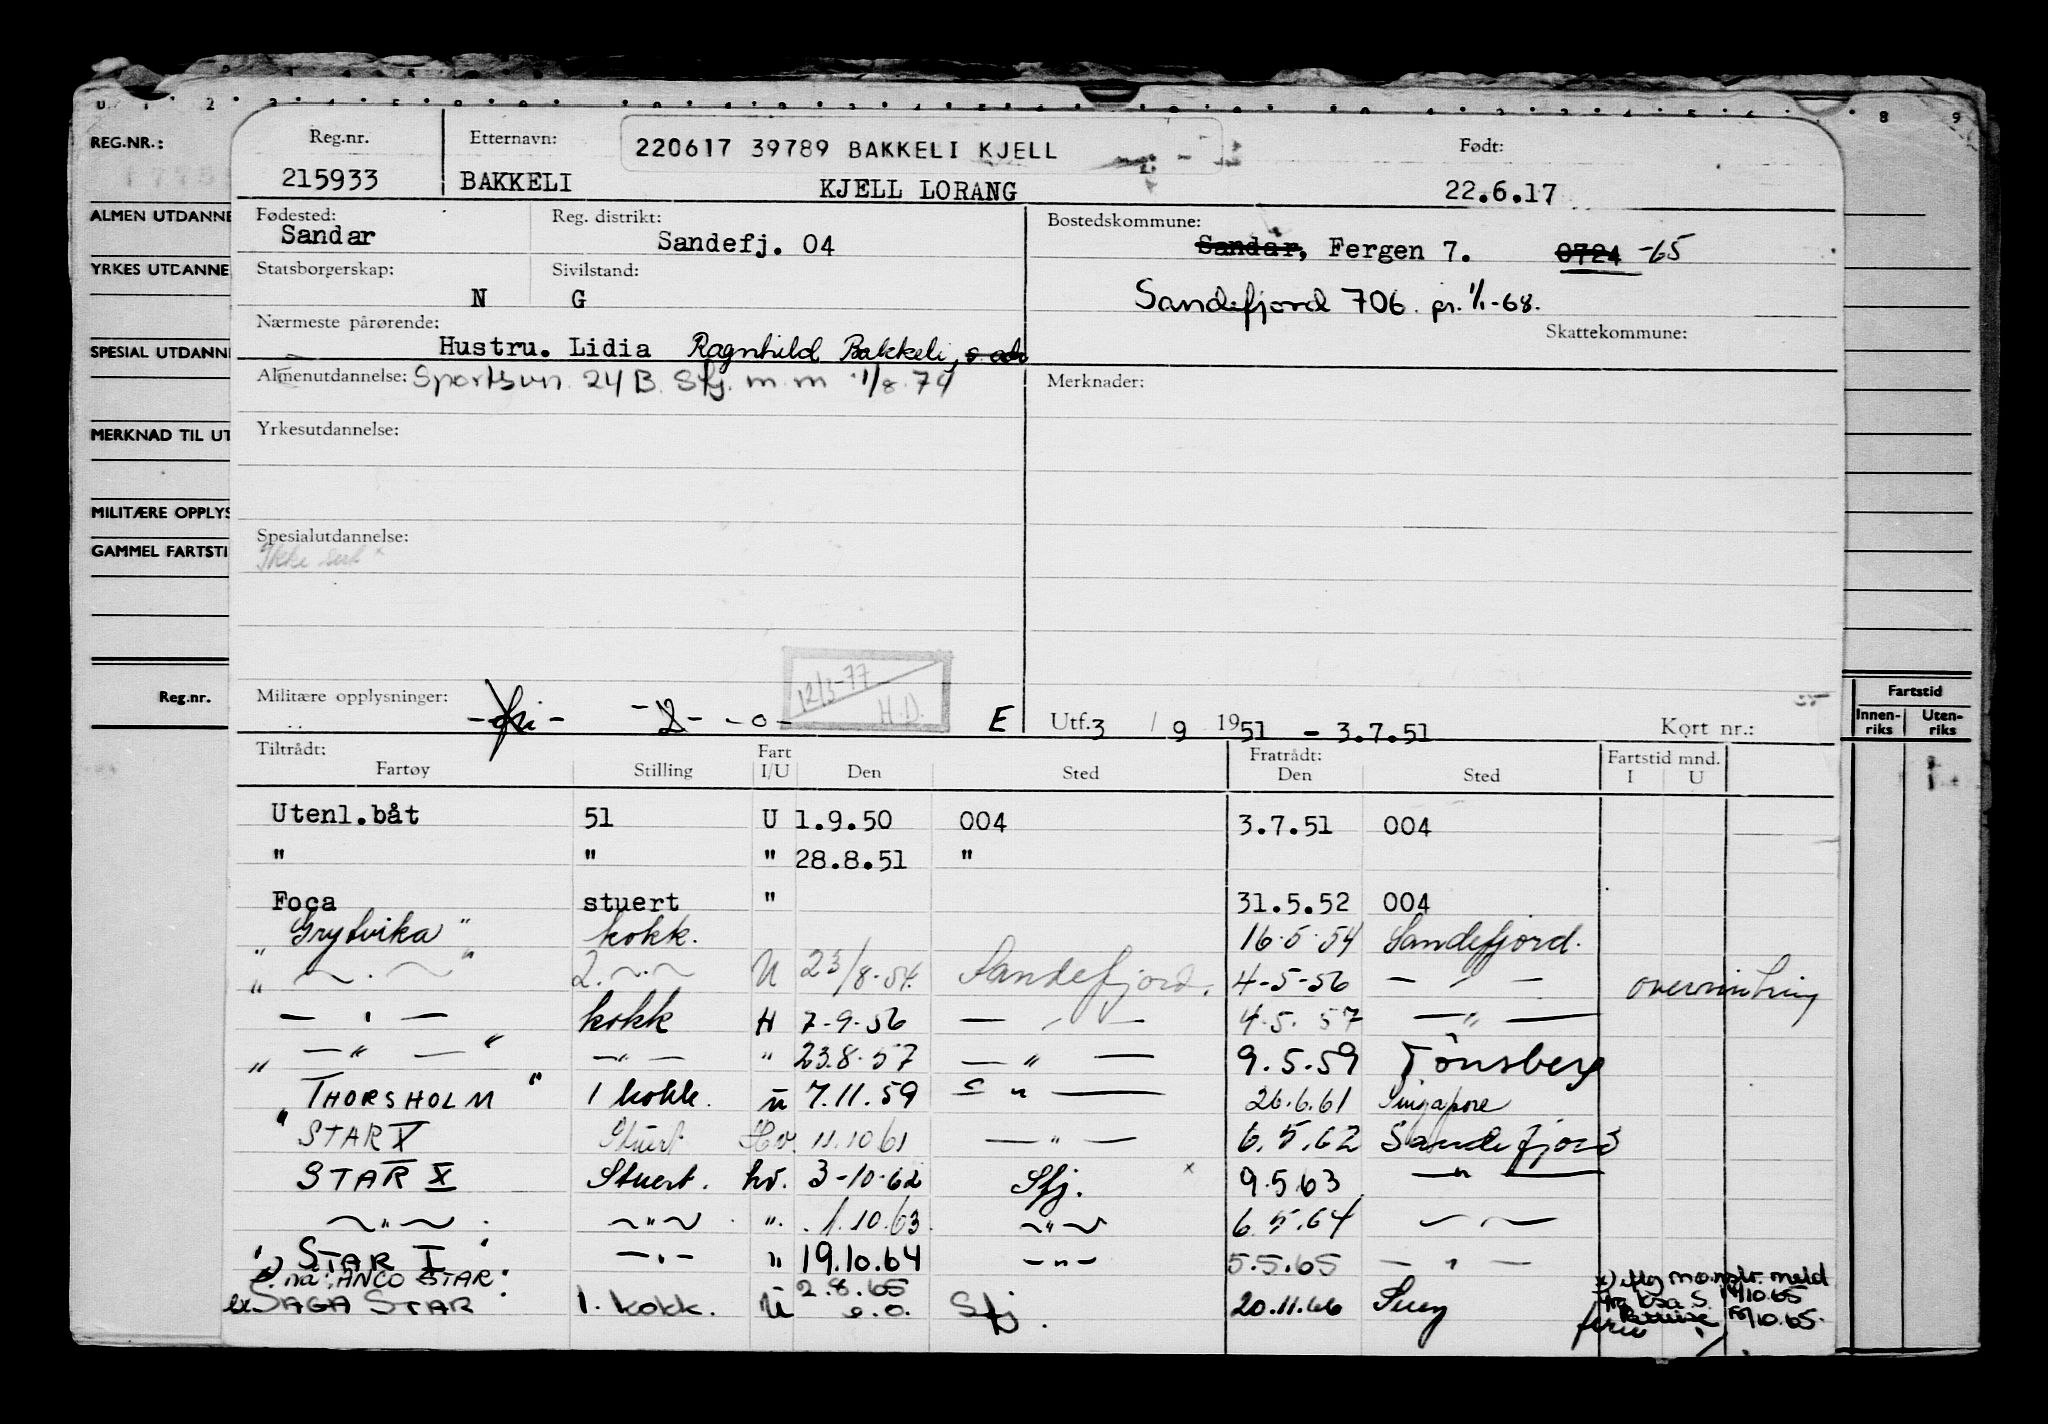 REG.NR.:
Reg.nr.
215933
Etternavn:
220617 39789 BAKKELI KJELL
BAKKELI KJELL LORANG
Født:
22.6.17
ALMEN UTDANNE
Fødested:
Sandar
Reg. distrikt:
Sandefj. 04
Bostedskommune:
Sandar, Fergen 7. 0724 -65
Sandefjord 706. pr. 1/1-68.
YRKES UTDANNE
Statsborgerskap:
N
Sivilstand:
G
Nærmeste pårørende:
Hustru. Lidia Ragnhild Bakkeli, s. adr
Skattekommune:
SPESIAL UTDANN
Almenutdannelse:
Sportsvn. 24 B. Sfj. m m 1/8.74
Merknader:
Yrkesutdannelse:
MERKNAD TIL UT
MILITÆRE OPPLYS
GAMMEL FARTSTI
Spesialutdannelse:
Ikke sert
Reg.nr.
Militære opplysninger:
-o-
12/3-77
H.D.
E
Utf. 3 / 9 1951 - 3.7.51
Kort nr.:
Fartstid
Innen-riks Uten-riks
Tiltrådt: Fart Fratrådt: Fartstid mnd.
Fartøy Stilling I/U Den Sted Den Sted I U
Utenl.båt 51 U 1.9.50 004 3.7.51 004
" " " 28.8.51 "
Foca stuert " 31.5.52 004
"Grytvika" kokk. 16.5.54 Sandefjord.
" ~ . ~ " 2. ~.~ U 23/8.54. Sandefjord. 4-5-56 — " — overvintring
— " — kokk H 7-9-56 — " — 4.5.57 — " —
" — " — " — " — " 23.8.57 — " — 9.5.59 Tønsberg
"THORSHOLM" 1 kokk. u 7.11.59 — " — 26.6.61 Singapore
"STAR V Stuert Hv. 11.10.61 — " — 6.5.62 Sandefjord
STAR X Stuert. hv. 3-10-62 Sfj. x 9.5.63 — " —
~ " ~ ~ " ~ ". 1.10.63 ~ " ~ 6.5.64 — " —
"STAR I" — " — " 19.10.64 — " — 5.5.65 — " —
nå "ANCO STAR" 2.8.65
ex SAGA STAR 1. kokk. U Sfj. 20.11.66 Suez
x) iflg mønstr. meld
fra
ferie